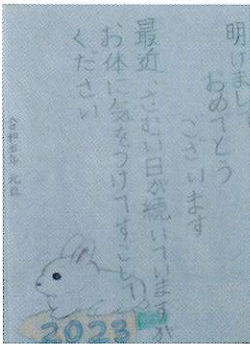 明けまして
おめでとう
ございます
最近さむい日が続いていますが
お体に気をつけてすごして
ください
令和五年 元旦
2023